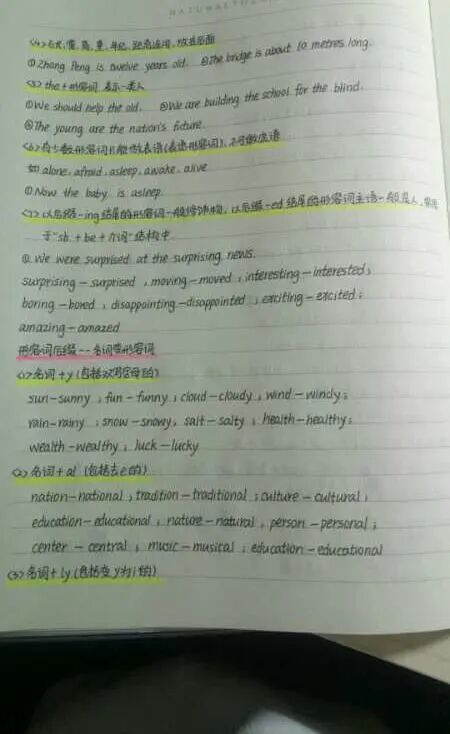 NATURAL
<4>与长,宽,高,重,年纪,距离连用,放在后面
①Zhang Peng is twelve years old. ②The bridge is about 10 metres long.
<5> the + 形容词 表示一类人
①We should help the old. ②We are building the school for the blind.
③The young are the nation's future.
<6>有少数形容词只能做表语(表语形容词),不可做定语
如 alone, afraid, asleep, awake, alive
① Now the baby is asleep.
<7>以后缀-ing结尾的形容词一般修饰物, 以后缀-ed结尾的形容词主语一般是人,常用
于"sb. + be + 介词"结构中
①. We were surprised at the surprising news.
surprising - surprised , moving-moved , interesting-interested;
boring-bored , disappointing-disappointed ; exciting-excited;
amazing-amazed
形容词后缀--名词变形容词
<1>名词+y (包括双写字母的)
sun-sunny , fun-funny ; cloud-cloudy , wind-windy;
rain-rainy ; snow-snowy, salt-salty ; health-healthy;
wealth-wealthy , luck-lucky
<2>名词+al (包括去e的)
nation-national , tradition-traditional ; culture-cultural ;
education-educational , nature-natural , person-personal ;
center-central , music-musical ; education-educational
<3>名词+ly (包括变y为i的)